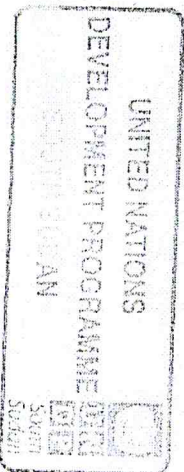 UNITED NATIONS
DEVELOPMENT PROGRAMME
SOUTH SUDAN
South
Sudan